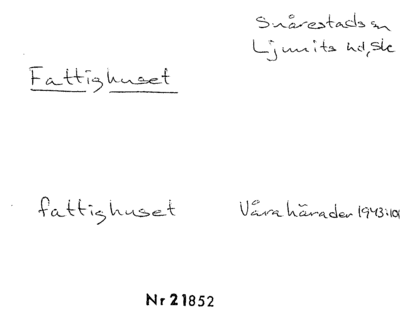 Snårestads sn
Ljunits hd, Sk
Fattighuset
fattighuset Våra härader 1943:101
Nr 21852